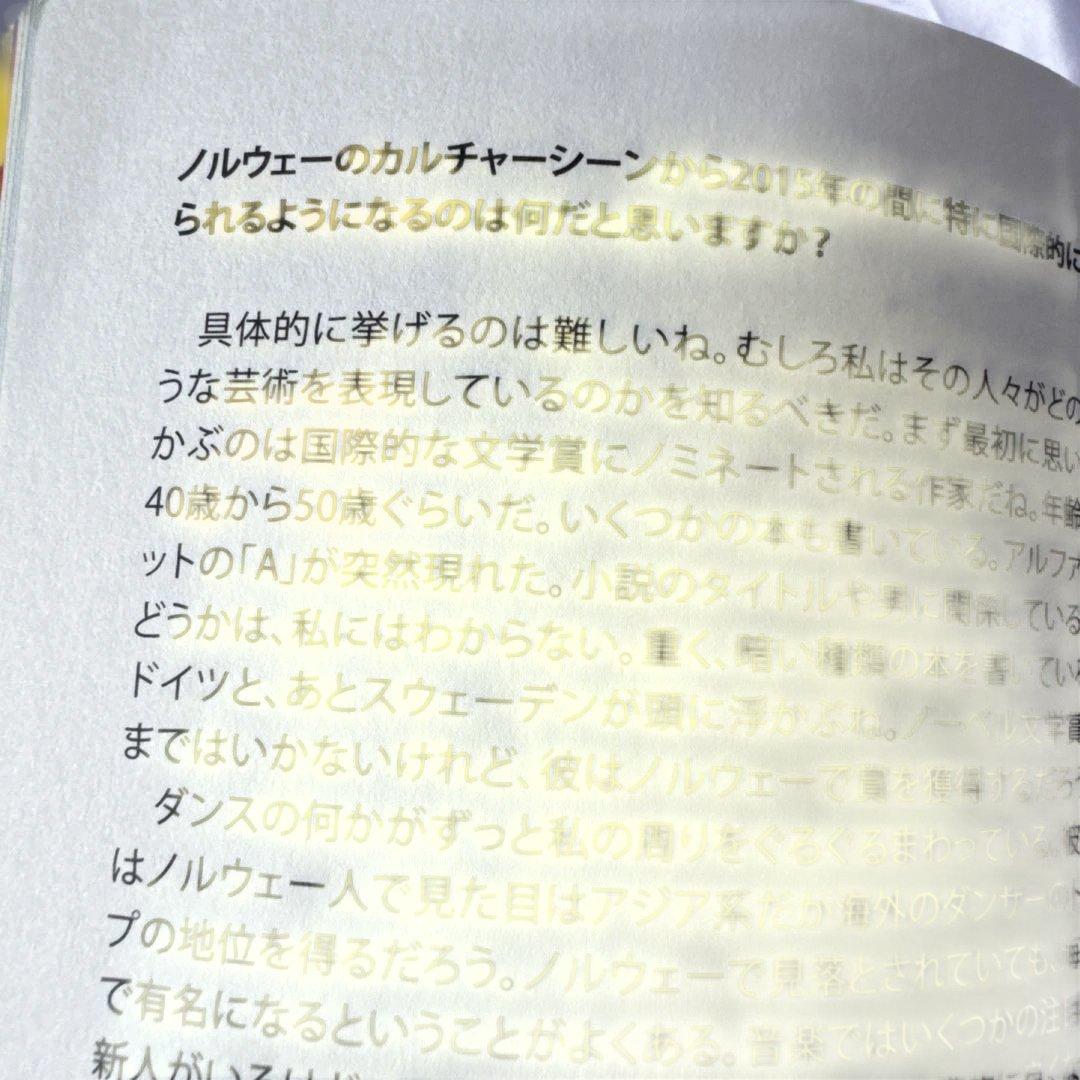 ノルウェーのカルチャーシーンから2015年の間に特に国際的に
られるようになるのは何だと思いますか？
具体的に挙げるのは難しいね。むしろ私はその人々がどの
うな芸術を表現しているのかを知るべきだ。まず最初に思い
かぶのは国際的な文学賞にノミネートされる作家だね。年齢
40歳から50歳ぐらいだ。いくつかの本も書いている。アルファ
ットの「A」が突然現れた。小説のタイトルや男に関係している
どうかは、私にはわからない。重く、暗い種類の本を書いてい
ドイツと、あとスウェーデンが頭に浮かぶね。ノーベル文学賞
まではいかないけれど、彼はノルウェーで賞を獲得するだろう
ダンスの何かがずっと私の周りをぐるぐるまわっている。彼
はノルウェー人で見た目はアジア系だが海外のダンサーのト
プの地位を得るだろう。ノルウェーで見落とされていても、
で有名になるということがよくある。音楽ではいくつかの注
新人がいるけど